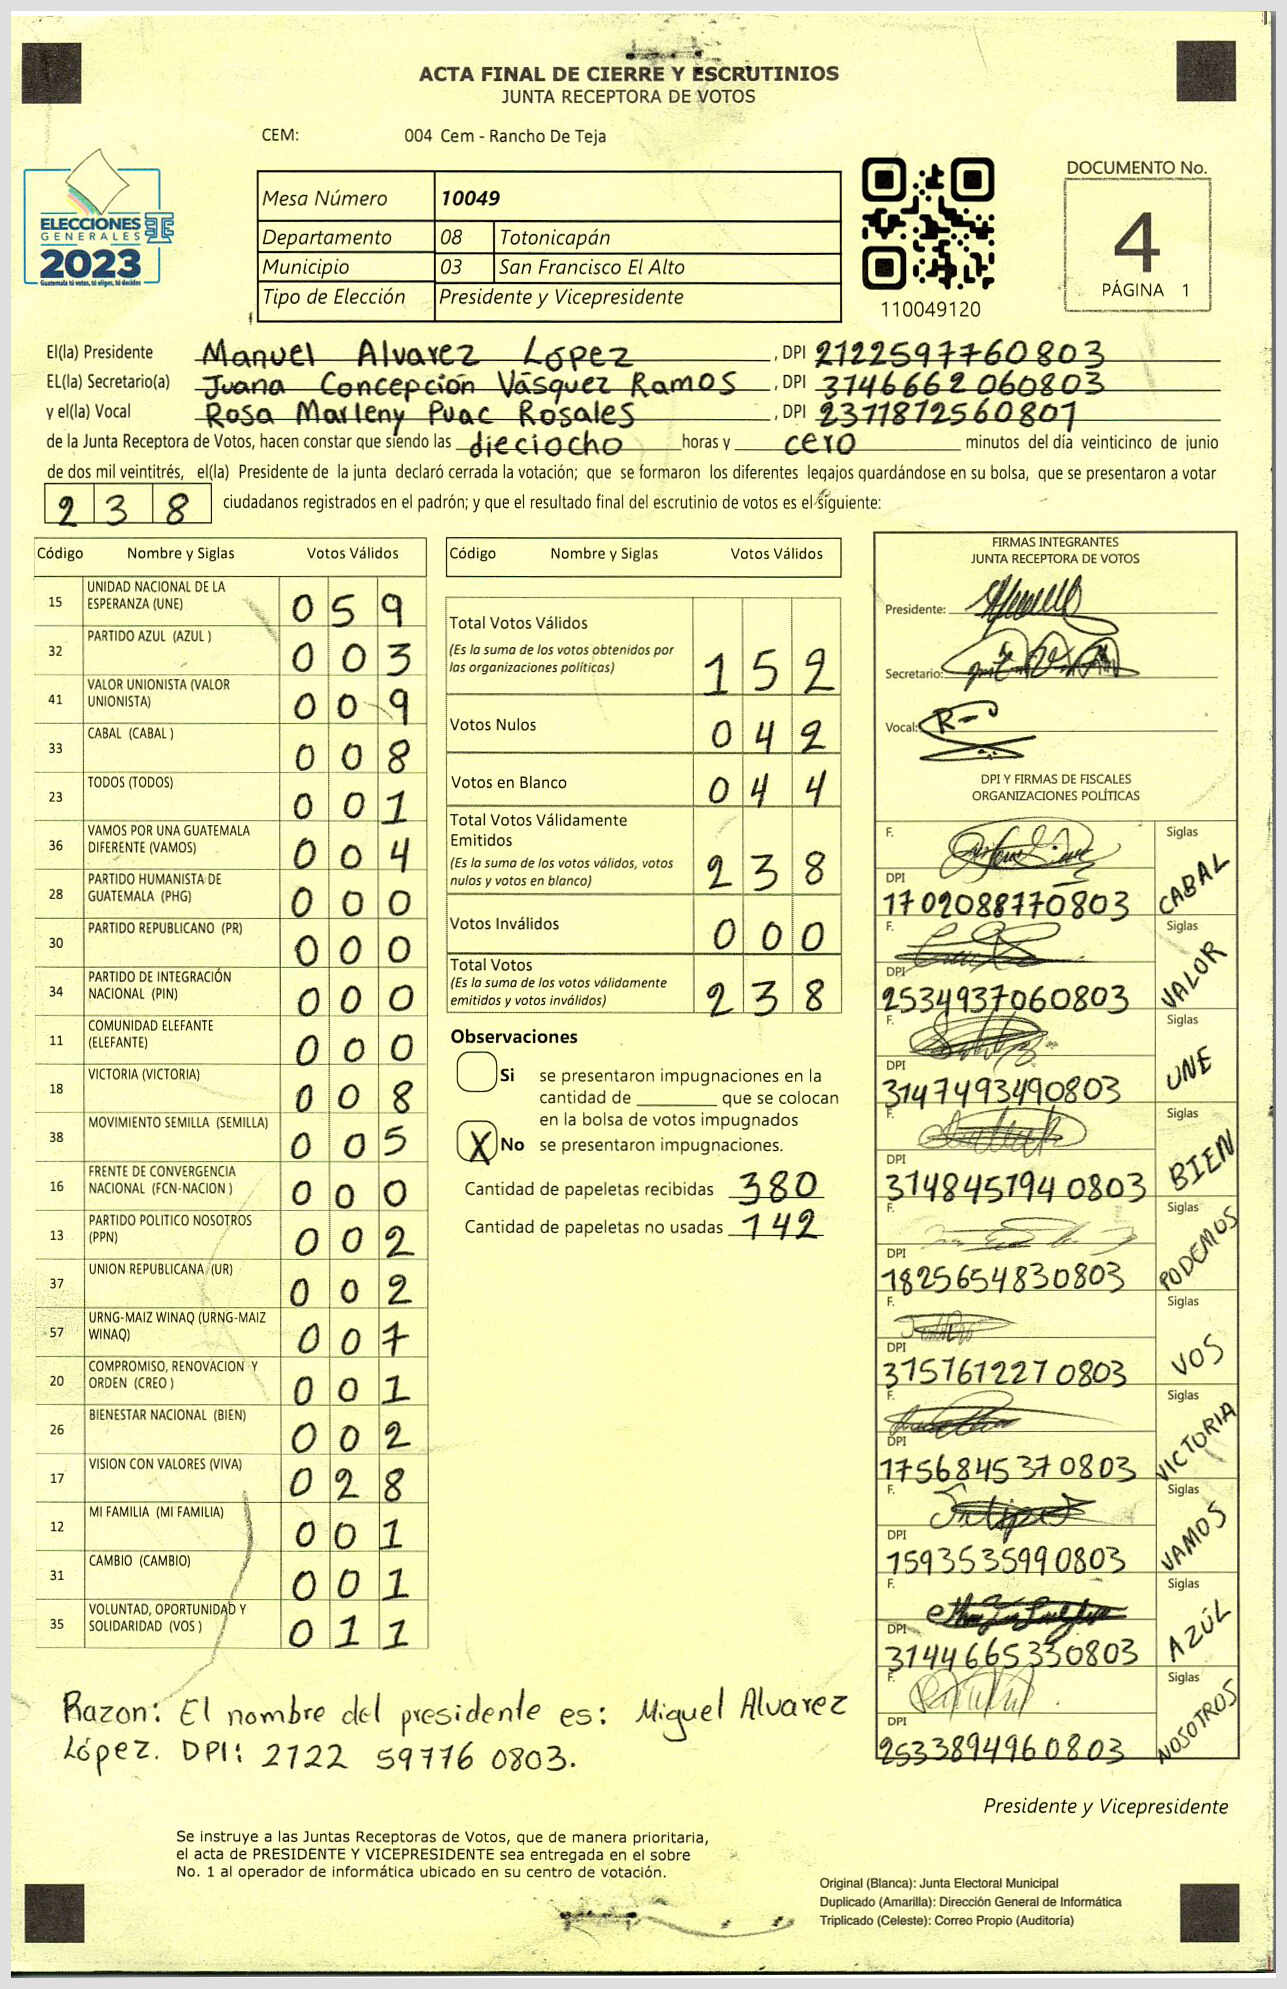 ACTA FINAL DE CIERRE Y ESCRUTINIOS
JUNTA RECEPTORA DE VOTOS
CEM: 004 Cem - Rancho De Teja
ELECCIONES
GENERALES
2023
Guatemala tú votas, tú eliges, tú decides
Mesa Número 10049
Departamento 08 Totonicapán
Municipio 03 San Francisco El Alto
Tipo de Elección Presidente y Vicepresidente
110049120
DOCUMENTO No.
4
PÁGINA 1
El(la) Presidente Manuel Alvarez López, DPI 2122597760803
EL(la) Secretario(a) Juana Concepción Vásquez Ramos, DPI 3146662060803
y el(la) Vocal Rosa Marleny Puac Rosales, DPI 2371872560801
de la Junta Receptora de Votos, hacen constar que siendo las dieciocho horas y cero minutos del día veinticinco de junio
de dos mil veintitrés, el(la) Presidente de la junta declaró cerrada la votación; que se formaron los diferentes legajos quardándose en su bolsa, que se presentaron a votar
238 ciudadanos registrados en el padrón; y que el resultado final del escrutinio de votos es el siguiente:
Código Nombre y Siglas Votos Válidos
15 UNIDAD NACIONAL DE LA ESPERANZA (UNE) 059
32 PARTIDO AZUL (AZUL ) 003
41 VALOR UNIONISTA (VALOR UNIONISTA) 009
33 CABAL (CABAL ) 008
23 TODOS (TODOS) 001
36 VAMOS POR UNA GUATEMALA DIFERENTE (VAMOS) 004
28 PARTIDO HUMANISTA DE GUATEMALA (PHG) 000
30 PARTIDO REPUBLICANO (PR) 000
34 PARTIDO DE INTEGRACIÓN NACIONAL (PIN) 000
11 COMUNIDAD ELEFANTE (ELEFANTE) 000
18 VICTORIA (VICTORIA) 008
38 MOVIMIENTO SEMILLA (SEMILLA) 005
16 FRENTE DE CONVERGENCIA NACIONAL (FCN-NACION ) 000
13 PARTIDO POLITICO NOSOTROS (PPN) 002
37 UNION REPUBLICANA (UR) 002
57 URNG-MAIZ WINAQ (URNG-MAIZ WINAQ) 007
20 COMPROMISO, RENOVACION Y ORDEN (CREO ) 001
26 BIENESTAR NACIONAL (BIEN) 002
17 VISION CON VALORES (VIVA) 028
12 MI FAMILIA (MI FAMILIA) 001
31 CAMBIO (CAMBIO) 001
35 VOLUNTAD, OPORTUNIDAD Y SOLIDARIDAD (VOS ) 011
Código Nombre y Siglas Votos Válidos
Total Votos Válidos
(Es la suma de los votos obtenidos por
las organizaciones políticas) 152
Votos Nulos 042
Votos en Blanco 044
Total Votos Válidamente
Emitidos
(Es la suma de los votos válidos, votos
nulos y votos en blanco) 238
Votos Inválidos 000
Total Votos
(Es la suma de los votos válidamente
emitidos y votos inválidos) 238
Observaciones
Si se presentaron impugnaciones en la
cantidad de ________ que se colocan
en la bolsa de votos impugnados
X No se presentaron impugnaciones.
Cantidad de papeletas recibidas 380
Cantidad de papeletas no usadas 142
FIRMAS INTEGRANTES
JUNTA RECEPTORA DE VOTOS
Presidente:
Secretario:
Vocal:
DPI Y FIRMAS DE FISCALES
ORGANIZACIONES POLÍTICAS
F. Siglas
DPI 1702088770803 CABAL
F. Siglas
DPI 2534937060803 VALOR
F. Siglas
DPI 3147493490803 UNE
F. Siglas
DPI 3148451940803 BIEN
F. Siglas
DPI 1825654830803 PODEMOS
F. Siglas
DPI 3151612270803 VOS
F. Siglas
DPI 1756845370803 VICTORIA
F. Siglas
DPI 1593535990803 VAMOS
F. Siglas
DPI 3144665330803 AZÚL
F. Siglas
DPI 2533894960803 NOSOTROS
Razon: El nombre del presidente es: Miguel Alvarez
López. DPI: 2122 59776 0803.
Presidente y Vicepresidente
Se instruye a las Juntas Receptoras de Votos, que de manera prioritaria,
el acta de PRESIDENTE Y VICEPRESIDENTE sea entregada en el sobre
No. 1 al operador de informática ubicado en su centro de votación.
Original (Blanca): Junta Electoral Municipal
Duplicado (Amarilla): Dirección General de Informática
Triplicado (Celeste): Correo Propio (Auditoría)